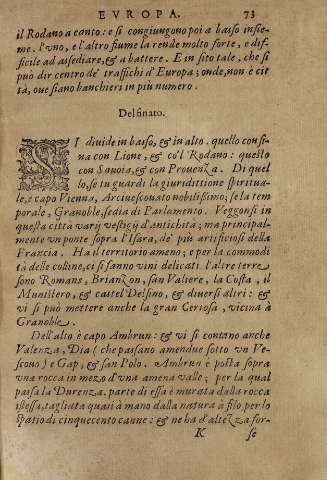 EVROPA. 73
il Rodano a canto: e si congiungono poi a basso insie-
me. l'vno, e l'altro fiume la rende molto forte, e dif-
ficile ad assediare, & a battere. E in sito tale, che si
può dir centro de' traffichi d'Europa; onde, non è cit
tà, oue siano banchieri in più numero.
Delfinato.
SI diuide in basso, & in alto. quello confi-
na con Lione, & co'l Rodano: questo
con Sauoia, & con Prouenza. Di quel
lo, se tu guardi la giuriditione spiritua-
le, è capo Vienna, Arciuescouato nobilissimo; se la tem
porale, Granoble, sedia di Parlamento. Veggonsi in
questa città varij vestigij d'antichità; ma principal-
mente un ponte sopra l'Isara, de' più artificiosi della
Francia. Ha il territorio ameno; e per la commodi
tà delle colline, ci si fanno vini delicati. l'altre terre
sono Romans, Brianzon, san Valiere, la Costa, il
Munistero, & castel Delfino, & diuersi altri: &
vi si può mettere anche la gran Certosa, vicina à
Granoble.
Dell'alto è capo Ambrun: & vi si contano anche
Valenza, Dia (che passano amendue sotto vn Ve-
scouo) e Gap, & san Polo. Ambrun è posta sopra
vna rocca in mezo d'vna amena valle; per la qual
passa la Durenza. parte di essa è murata dalla rocca
istessa, tagliata quasi à mano dalla natura à filo, per lo
spatio di cinquecento canne: & ne ha d'altezza for-
K se